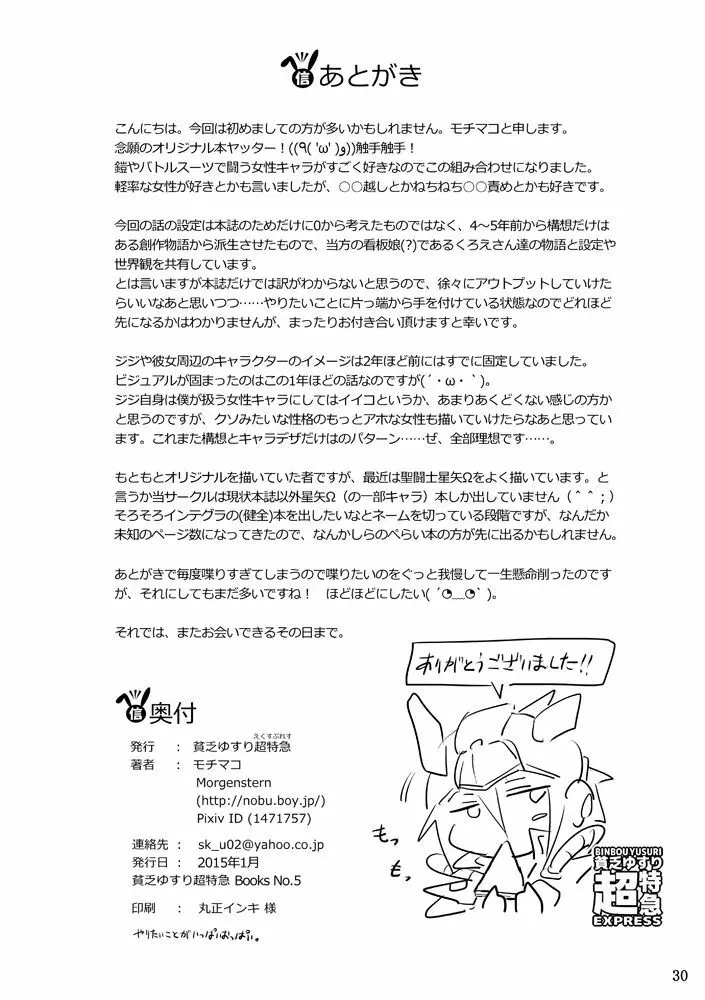 信 あとがき
こんにちは。今回は初めましての方が多いかもしれません。モチマコと申します。
念願のオリジナル本ヤッター！((٩( 'ω' )و))触手触手！
鎧やバトルスーツで闘う女性キャラがすごく好きなのでこの組み合わせになりました。
軽率な女性が好きとかも言いましたが、○○越しとかねちねち○○責めとかも好きです。
今回の話の設定は本誌のためだけに0から考えたものではなく、4～5年前から構想だけは
ある創作物語から派生させたもので、当方の看板娘(?)であるくろえさん達の物語と設定や
世界観を共有しています。
とは言いますが本誌だけでは訳がわからないと思うので、徐々にアウトプットしていけた
らいいなあと思いつつ……やりたいことに片っ端から手を付けている状態なのでどれほど
先になるかはわかりませんが、まったりお付き合い頂けますと幸いです。
ジジや彼女周辺のキャラクターのイメージは2年ほど前にはすでに固定していました。
ビジュアルが固まったのはこの1年ほどの話なのですが(´・ω・｀)。
ジジ自身は僕が扱う女性キャラにしてはイイコというか、あまりあくどくない感じの方か
と思うのですが、クソみたいな性格のもっとアホな女性も描いていけたらなあと思ってい
ます。これまた構想とキャラデザだけはのパターン……ぜ、全部理想です……。
もともとオリジナルを描いていた者ですが、最近は聖闘士星矢Ωをよく描いています。と
言うか当サークルは現状本誌以外星矢Ω（の一部キャラ）本しか出していません（＾＾；）
そろそろインテグラの(健全)本を出したいなとネームを切っている段階ですが、なんだか
未知のページ数になってきたので、なんかしらのぺらい本の方が先に出るかもしれません。
あとがきで毎度喋りすぎてしまうので喋りたいのをぐっと我慢して一生懸命削ったのです
が、それにしてもまだ多いですね！　ほどほどにしたい( ´◔‿◔`)。
それでは、またお会いできるその日まで。
ありがとうございました!!
信 奥付
えくすぷれす
発行　：　貧乏ゆすり超特急
著者　：　モチマコ
Morgenstern
(http://nobu.boy.jp/)
Pixiv ID (1471757)
連絡先：　sk_u02@yahoo.co.jp
発行日：　2015年1月
貧乏ゆすり超特急 Books No.5
印刷　：　丸正インキ 様
やりたいことがいっぱいおっぱい。
もっ
もっ
BINBOUYUSURI
貧乏ゆすり
超特急
EXPRESS
30